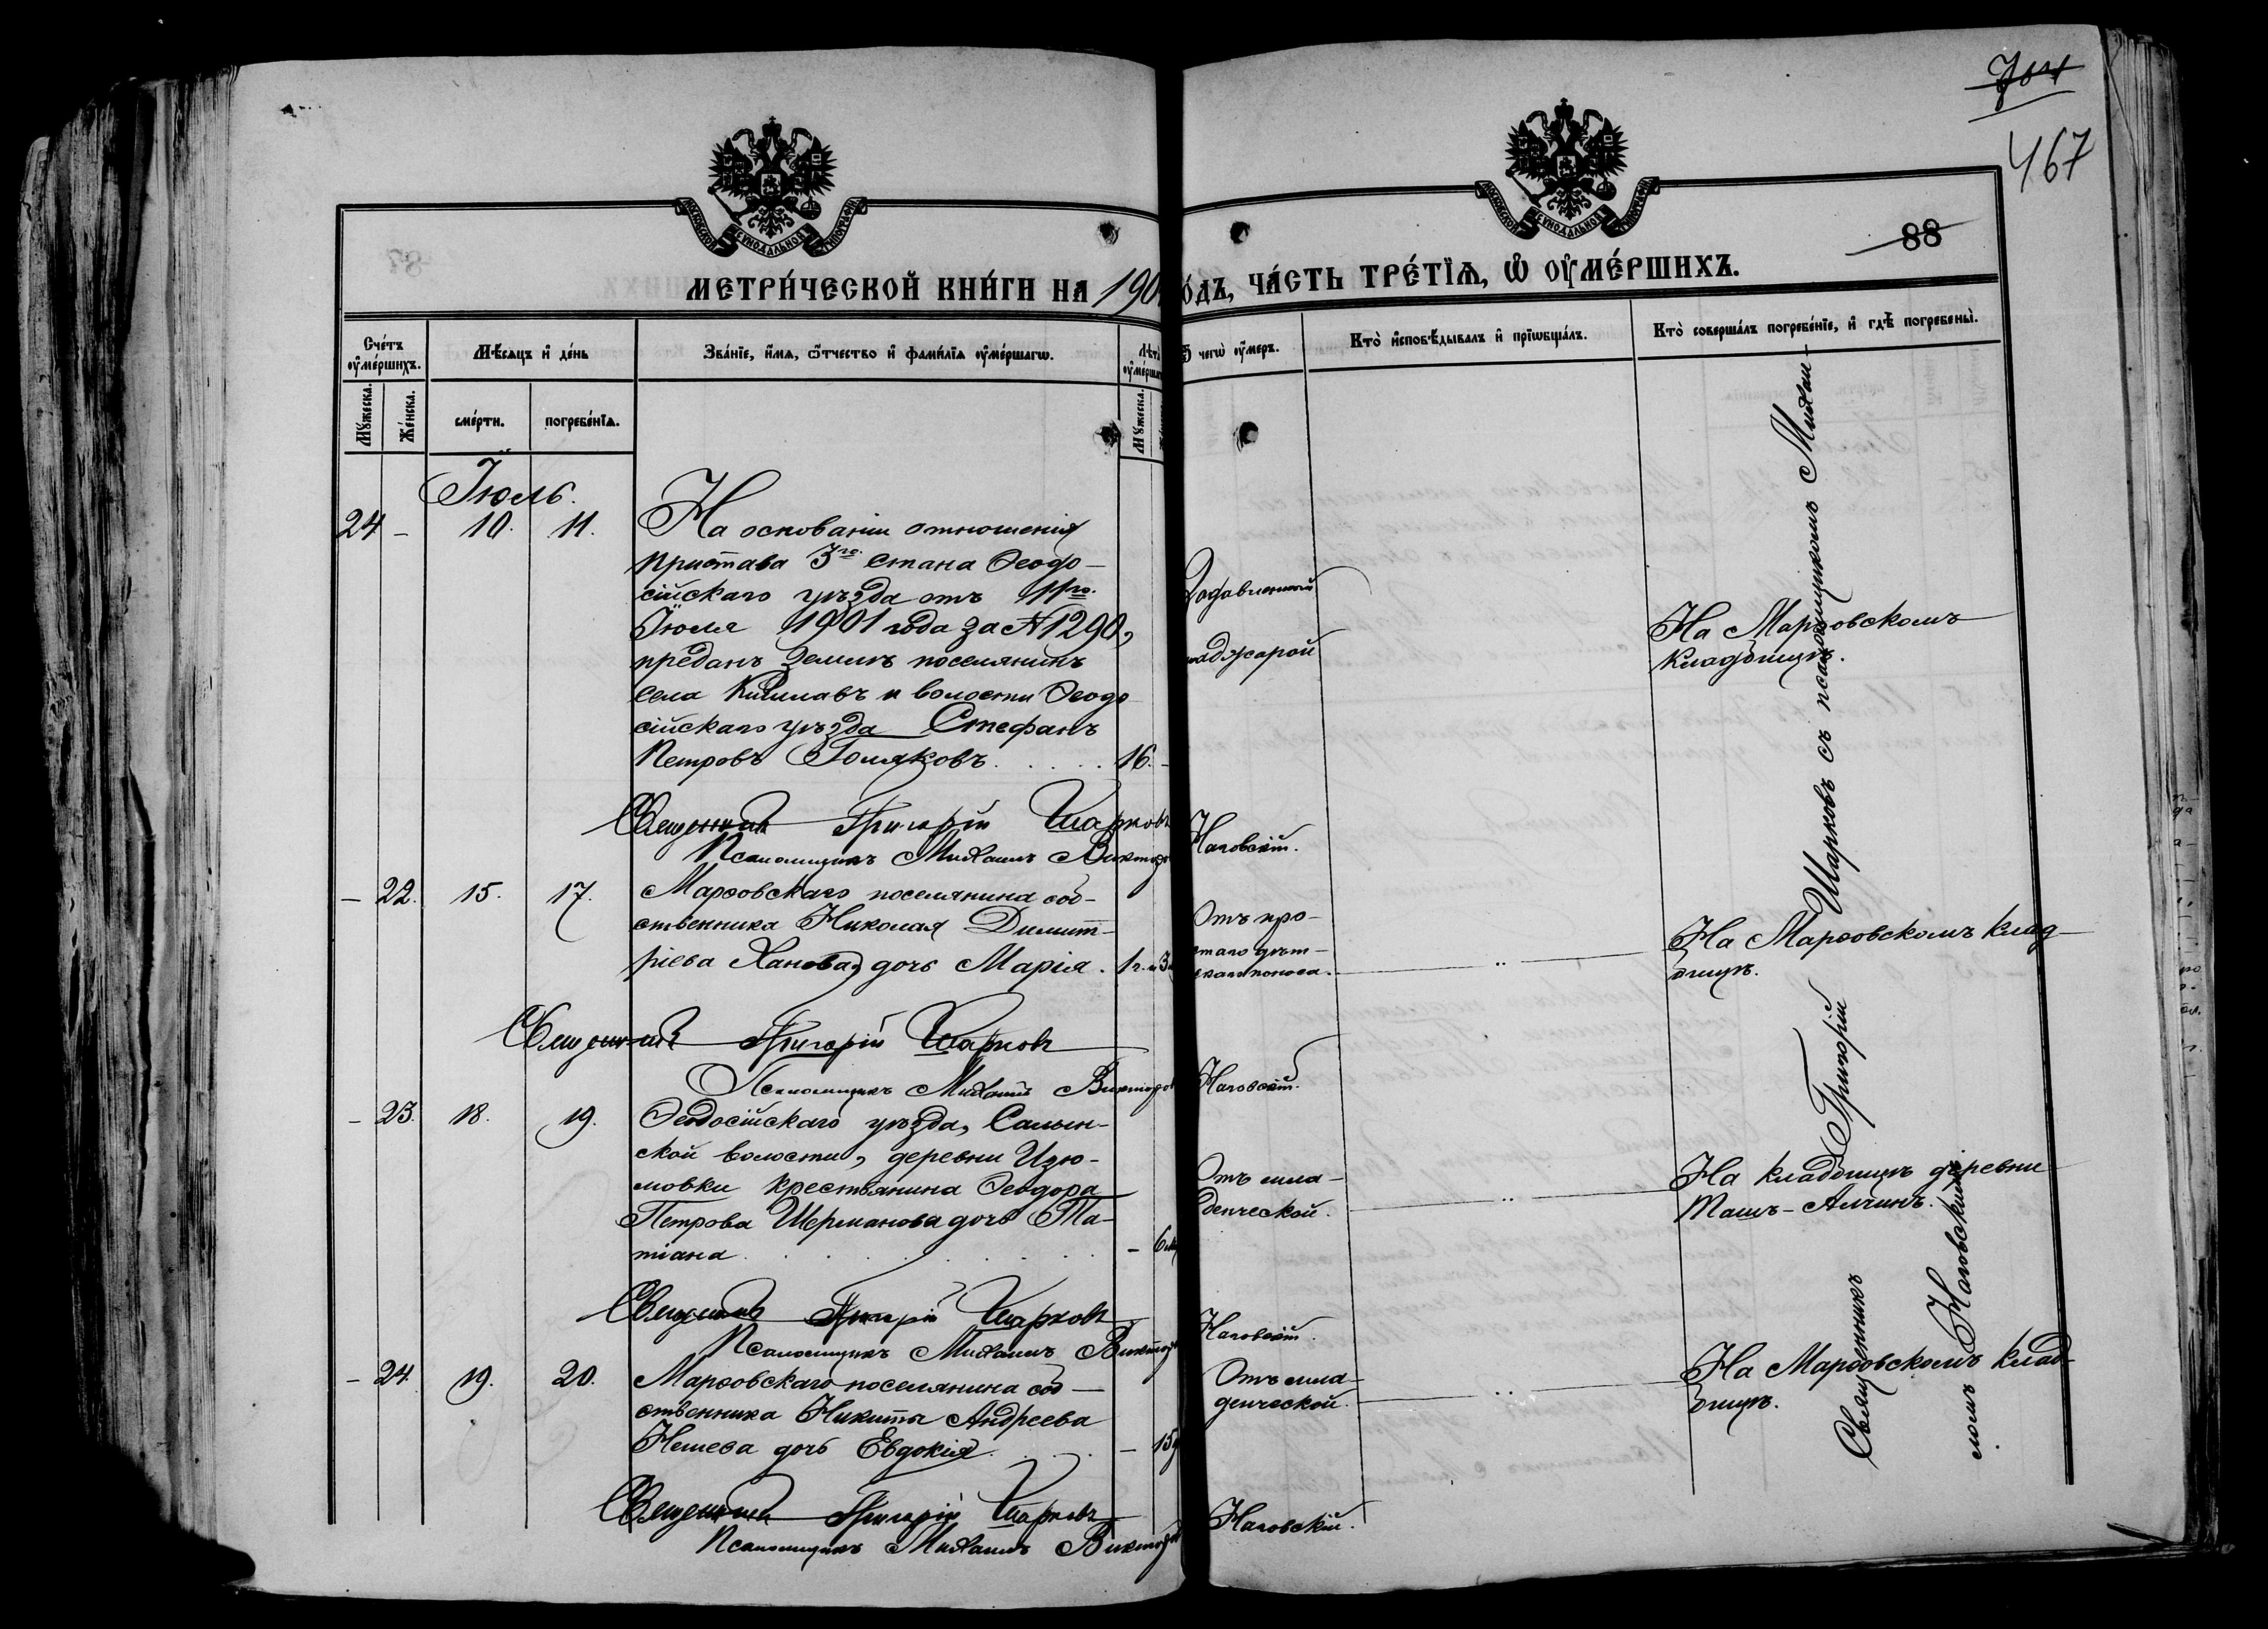 704
467
88
МОСКОВСКОЙ СѴНОДАЛЬНОЙ ТИПОГРАФІИ
МОСКОВСКОЙ СѴНОДАЛЬНОЙ ТИПОГРАФІИ
МЕТРИ́ЧЕСКОЙ КНИ́ГИ НА 190
О́ДЪ, ЧА́СТЬ ТРЕ́ТЇѦ, Ѽ ОУ҆МЕ́РШИХЪ.
Сче́тъ оу҆ме́ршихъ.
Мѣ́сяцъ и҆ де́нь
Зва́нїе, и҆́мѧ, ѻ҆́тчество и҆ фами́лїѧ оу҆ме́ршагѡ.
Лѣта̀ оу҆ме́рша
чегѡ̀ оу҆́меръ.
Кто̀ и҆сповѣ́дывалъ и҆ прїѡбща́лъ.
Кто̀ соверша́лъ погребе́нїе, и҆ гдѣ̀ погребены̀.
Мꙋ́жеска.
Же́нска.
сме́рти.
погребе́нїѧ.
Мꙋ́жеска.
Іюль.
24 - 10. 11. На основаніи отношенія
пристава 3го стана Ѳеодо-
сійскаго уѣзда отъ 11го.
Іюля 1901 года за № 1290,
преданъ землѣ поселянинъ
села Кишлавъ и волости Ѳеодо
сійскаго уѣзда Стефанъ
Петровъ Поляковъ. 16. -
Задавленный
маджарой
На Марѳовскомъ
кладбищѣ.
Священникъ Григорій Шарковъ
Псаломщикъ Михаилъ Викторъ Наговскій.
- 22. 15. 17. Марѳовскаго поселянина соб-
ственника Николая Димит-
ріева Ханова, дочь Марія. 1 г. и 3
Отъ про-
стаго дѣт-
скаго поноса.
На Марѳовскомъ клад-
бищѣ.
Священникъ Григорій Шарковъ
Псаломщикъ Михаилъ Викторъ Наговскій.
- 23. 18. 19. Ѳеодосійскаго уѣзда, Салын-
ской волости, деревни Изю-
мовки крестьянина Ѳеодора
Петрова Шерманова дочь Та-
тіана. - 6 м
Отъ мла-
денческой.
На кладбищѣ деревни
Ташъ-Алчинъ.
Священникъ Григорій Шарковъ
Псаломщикъ Михаилъ Викторъ Наговскій.
- 24. 19. 20. Марѳовскаго поселянина соб-
ственника Никиты Андреева
Нешева дочь Евдокія. - 15 д
Отъ мла-
денческой.
На Марѳовскомъ клад-
бищѣ.
Священникъ Григорій Шарковъ
Псаломщикъ Михаилъ Викторъ Наговскій.
Священникъ Григорій Шарковъ съ псаломщикомъ Михаи-
ломъ Наговскимъ.